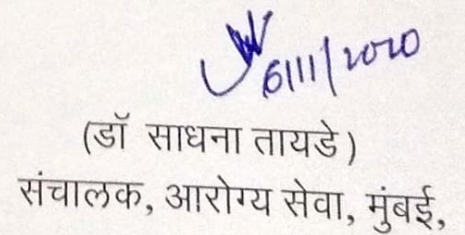 6/11/2020
(डॉ साधना तायडे)
संचालक, आरोग्य सेवा, मुंबई,